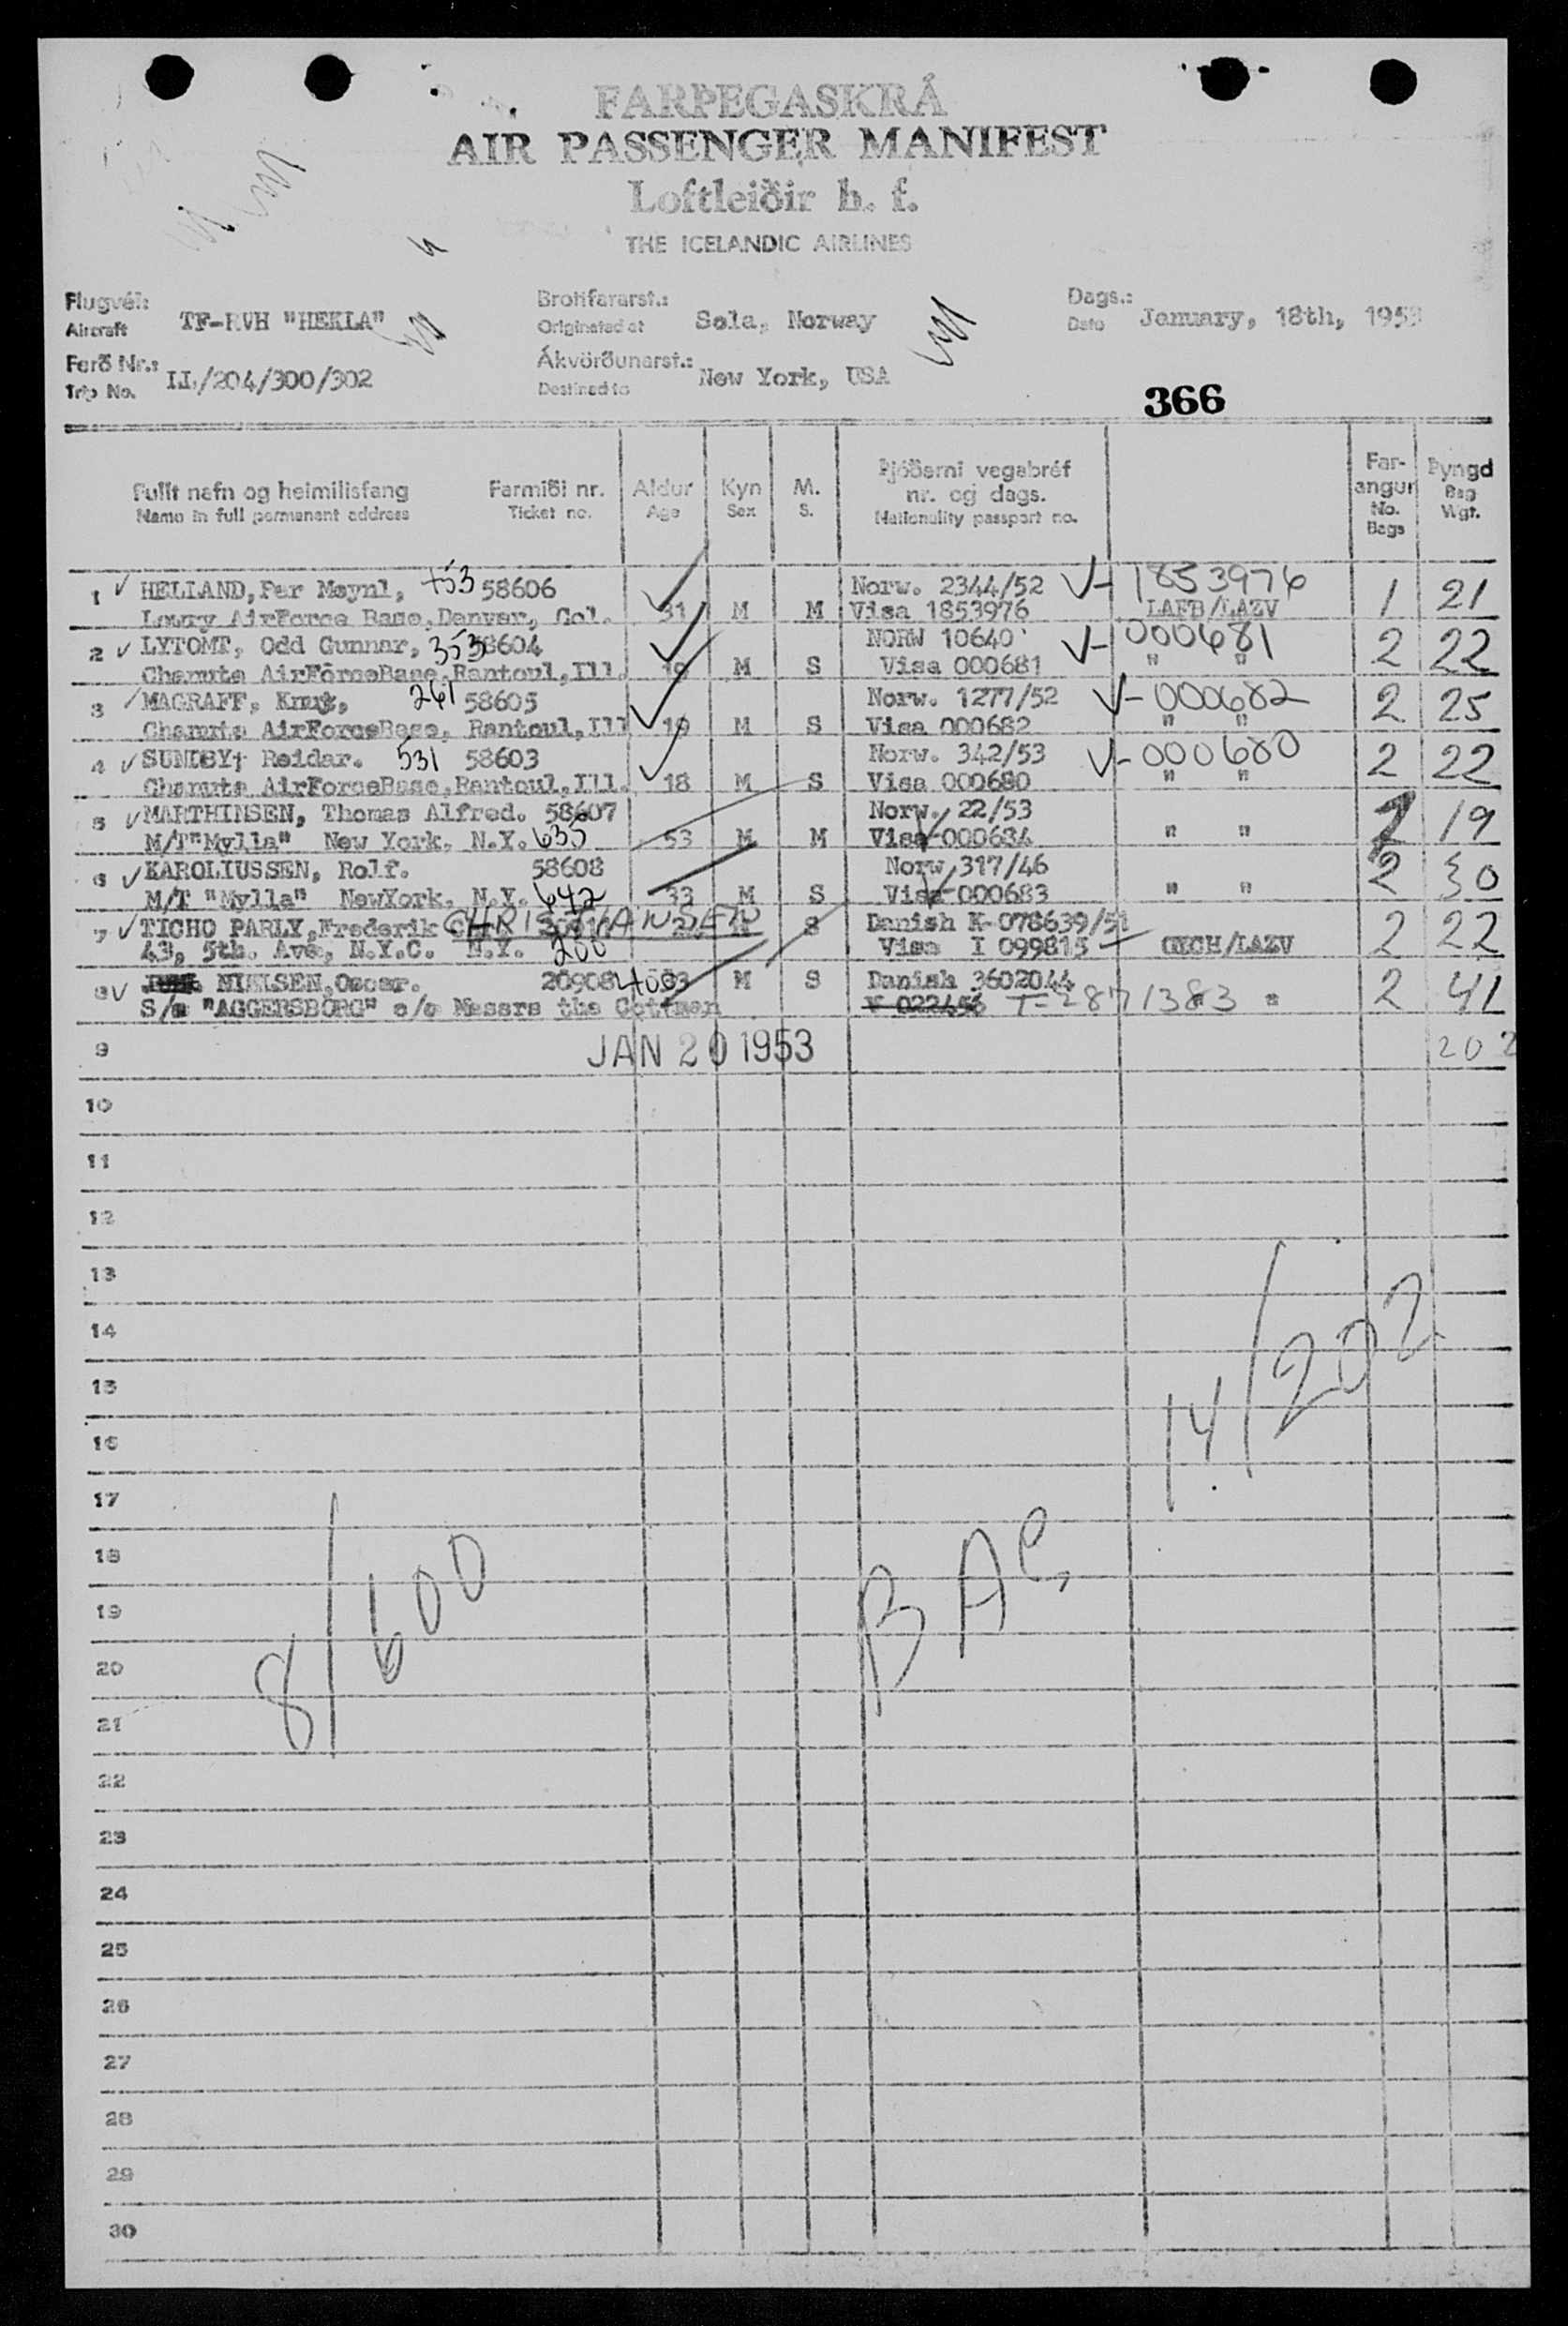 FARÞEGASKRÁ
AIR PASSENGER MANIFEST
Loftleiðir h. f.
THE ICELANDIC AIRLINES
Flugvél: Aircraft TF-RVH "HEKLA" Brottfararst.: Originated at Sola, Norway Dags.: Date January, 18th, 1953
Ferð Nr.: Trip No. LL/204/300/302 Ákvörðunarst.: Destined to New York, USA
366
Fullt nafn og heimilisfang Farmiði nr. Aldur Kyn M. Þjóðerni vegabréf nr. og dags. Far-angur Þyngd
Name in full permanent address Ticket no. Age Sex S. Nationality passport no. No. Bags Bag Wgt.
1 HELLAND, Per 58606 Norw. 2344/52 V-1853976
Lowry AirForce Base, Denver, Col. 31 M M Visa 1853976 LAFB/LAZV 1 21
2 LYTOMT, Odd Gunnar, 353 58604 NORW 10640 V-000681
Chanute AirForceBase, Rantoul, Ill. 19 M S Visa 000681 " " 2 22
3 MAGRAFF, Knut, 261 58605 Norw. 1277/52 V-000682
Chanute AirForceBase, Rantoul, Ill 19 M S Visa 000682 " " 2 25
4 SUNDBY, Reidar. 531 58603 Norw. 342/53 V-000680
Chanute AirForceBase, Rantoul, Ill. 18 M S Visa 000680 " " 2 22
5 MARTHINSEN, Thomas Alfred. 58607 Norw. 22/53
M/T "Mylla" New York. N.Y. 635 53 M M Visa 000684 " " 1 19
6 KAROLIUSSEN, Rolf. 58608 Norw. 317/46
M/T "Mylla" NewYork. N.Y. 642 33 M S Visa 000683 " " 2 30
7 TICHO PARLY, Frederik CHRISTIANSEN S Danish K-078639/51
43, 5th. Ave, N.Y.C. N.Y. 200 Visa I 099815 GYCH/LAZV 2 22
8 NIELSEN, Oscar. 20908 M S Danish 3602044
S/s "AGGERSBORG" c/o Messrs the Cottman V 022456 T-2871383 " 2 41
9 JAN 20 1953 202
10
11
12
13
14
15
16
17
18
19
20
21
22
23
24
25
26
27
28
29
30
14/202
8/600
BAC